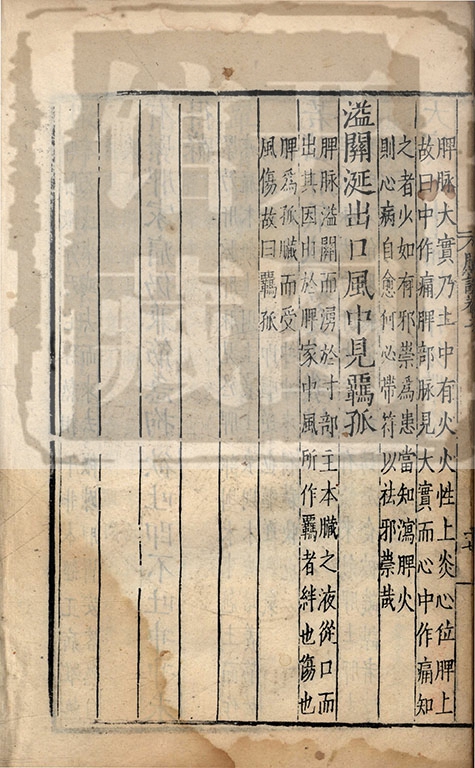 脾脉大實乃土中有火火性上炎心位脾上
故曰中作痛脾部脉見大實而心中作痛知
之者少如有邪祟爲患當知瀉脾火
則心病自愈何必帶符以祛邪祟哉
溢關涎出口風中見羈孤
脾脉溢關而湧於寸部主本臟之液從口而
出其因由於脾家中風所作羈者絆也傷也
脾爲孤臟而受
風傷故曰羈孤